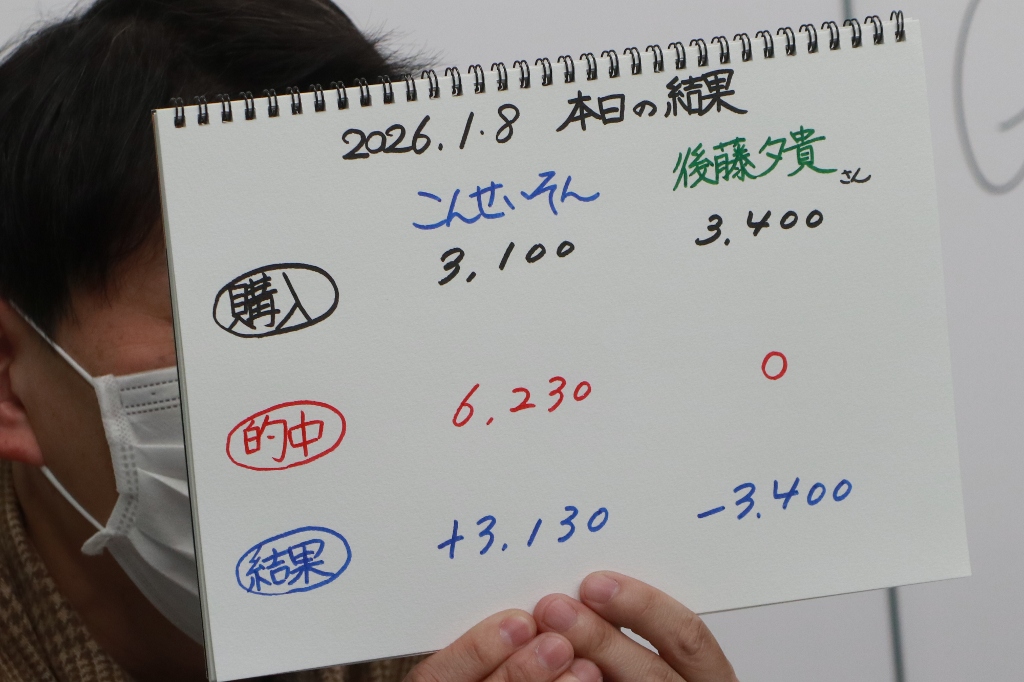 2026.1.8 本日の結果
こんせいそん 後藤夕貴さん
購入 3,100 3,400
的中 6,230 0
結果 +3,130 -3,400